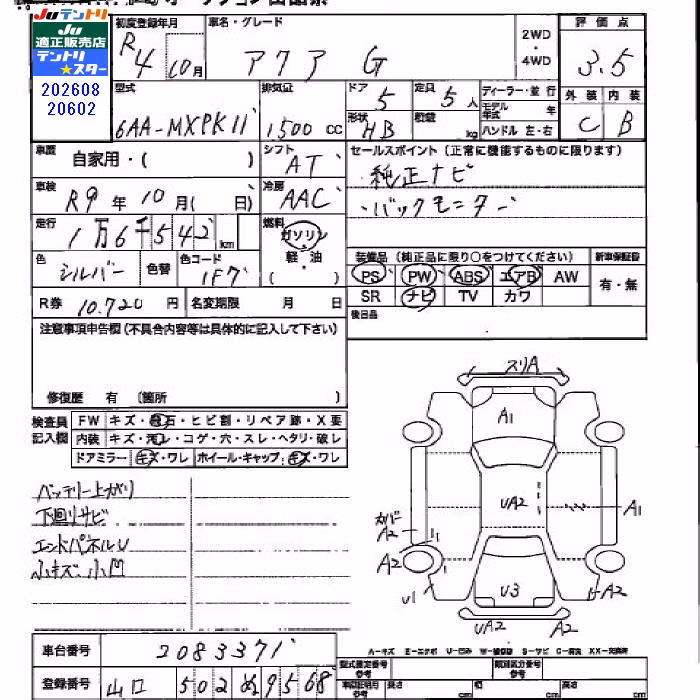 Juテントリ
Ju
適正販売店
テントリ
★スター
202608
20602
初度登録年月
R4 10月
車名・グレード
アクア G
2WD
・
4WD
評価点
3.5
型式
6AA-MXPK11
排気量
1500 cc
ドア
5
定員
5人
形状
HB
積載
kg
ディーラー・並行
モデル年式 年
ハンドル 左・右
外装 内装
C B
車歴
自家用・( )
シフト
AT
セールスポイント(正常に機能するものに限ります)
純正ナビ
・バックモニター
車検
R9年10月( 日)
冷房
AAC
走行
1万6千542km
燃料
ガソリン
・
軽・油
( )
色
シルバー
色替
色コード
1F7
装備品(純正品に限り○をつけてください)
新車保証書
PS PW ABS エアB AW
有・無
SR ナビ TV カワ
R券 10,720円
名変期限 月 日
後日品
注意事項申告欄(不具合内容等は具体的に記入して下さい)
修復歴 有 〔箇所 〕
検査員
記入欄
FW キズ・飛石・ヒビ割・リペア跡・X要
内装 キズ・汚レ・コゲ・穴・スレ・ヘタリ・破レ
ドアミラー キズ・ワレ ホイール・キャップ キズ・ワレ
バッテリー上がり
下廻りサビ
エンドパネルU
小キズ、小凹
スリA
A1
UA2
A1
カバー
A2
A2
U1
U3
A2
UA2
A2
A-キズ E-エクボ U-凹み W-補修跡 S-サビ C-腐食 XX-交換済
車台番号
2083371
登録番号
山口 502 ぬ 95 68
型式指定番号
類別区分番号
長さ cm
幅 cm
高さ cm